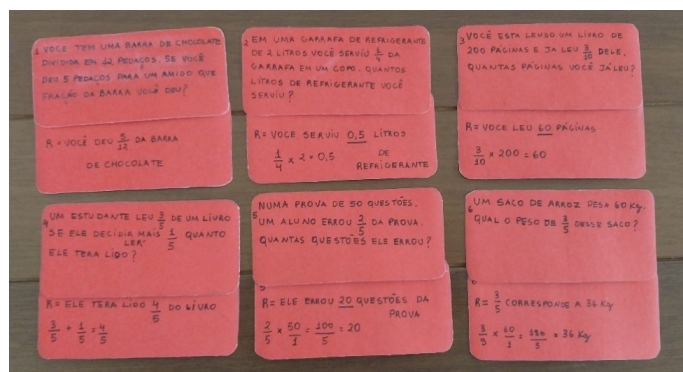 1 VOCÊ TEM UMA BARRA DE CHOCOLATE
DIVIDIDA EM 12 PEDAÇOS. SE VOCÊ
DEU 5 PEDAÇOS PARA UM AMIGO QUE
FRAÇÃO DA BARRA VOCÊ DEU?
R = VOCÊ DEU 5/12 DA BARRA
DE CHOCOLATE
2 EM UMA GARRAFA DE REFRIGERANTE
DE 2 LITROS VOCÊ SERVIU 1/4 DA
GARRAFA EM UM COPO. QUANTOS
LITROS DE REFRIGERANTE VOCÊ
SERVIU?
R = VOCE SERVIU 0,5 LITROS
DE
1/4 × 2 = 0,5 REFRIGERANTE
3 VOCÊ ESTA LENDO UM LIVRO DE
200 PÁGINAS E JA LEU 3/10 DELE.
QUANTAS PÁGINAS VOCÊ JÁ LEU?
R = VOCE LEU 60 PÁGINAS
3/10 × 200 = 60
4 UM ESTUDANTE LEU 3/5 DE UM LIVRO
SE ELE DECIDIR LER MAIS 1/5 QUANTO
ELE TERA LIDO?
R = ELE TERA LIDO 4/5 DO LIVRO
3/5 + 1/5 = 4/5
5 NUMA PROVA DE 50 QUESTÕES.
UM ALUNO ERROU 2/5 DA PROVA.
QUANTAS QUESTÕES ELE ERROU?
5
R = ELE ERROU 20 QUESTÕES DA
PROVA
2/5 × 50/1 = 100/5 = 20
6 UM SACO DE ARROZ PESA 60 Kg.
QUAL O PESO DE 3/5 DESSE SACO?
R = 3/5 CORRESPONDE A 36 Kg
3/5 × 60/1 = 180/5 = 36 Kg